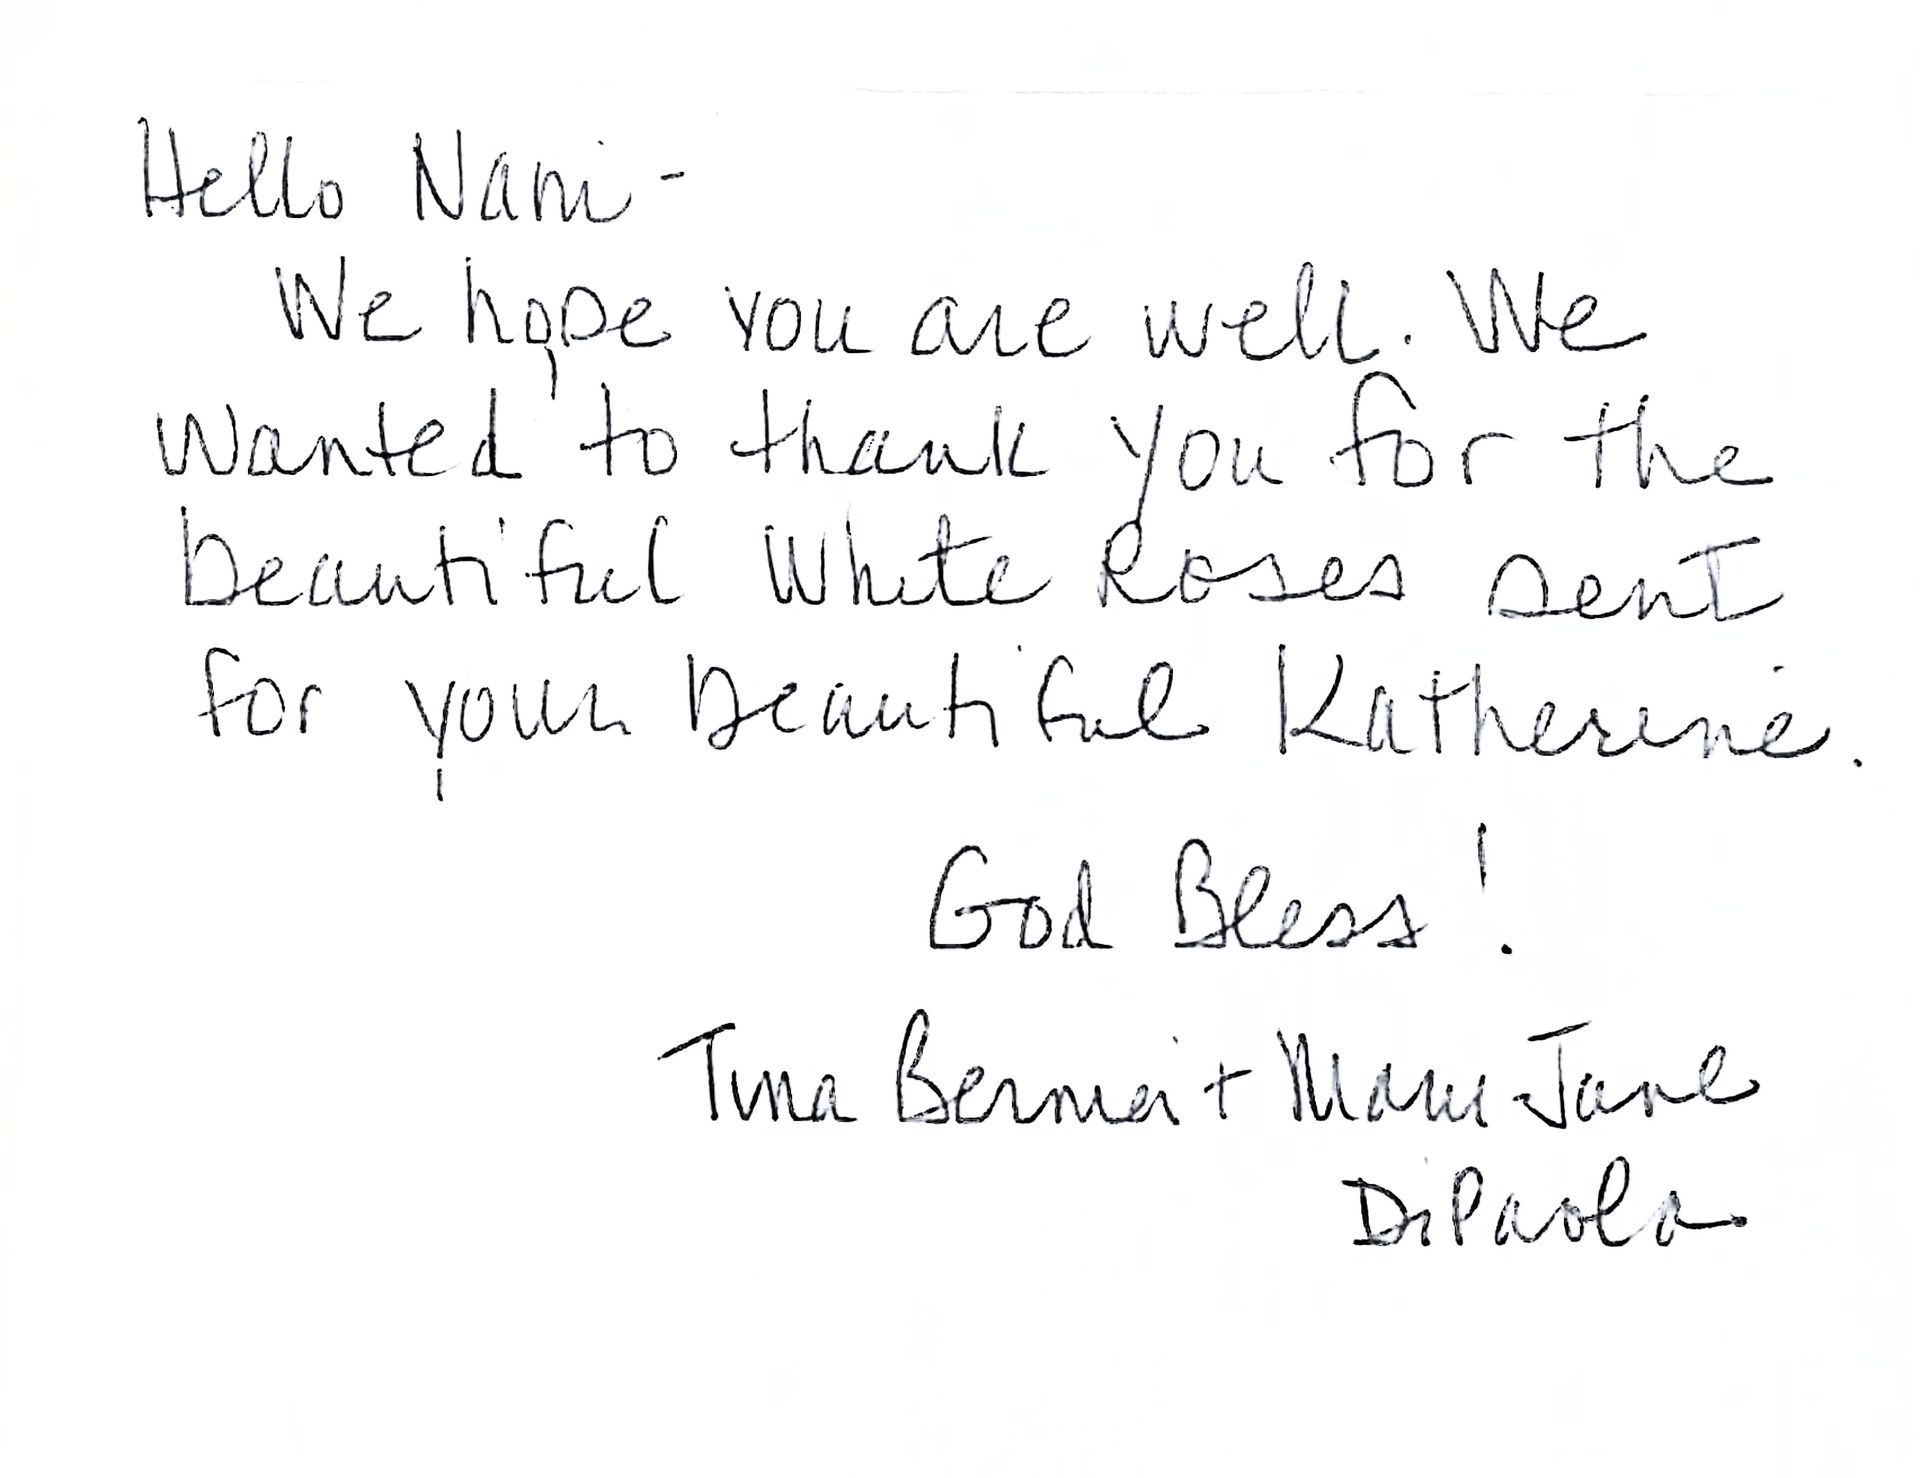 Hello Nani -
We hope you are well. We
wanted to thank you for the
beautiful White Roses sent
for your beautiful Katherine.
God Bless!
Tina + Mary Jane
DiPaola